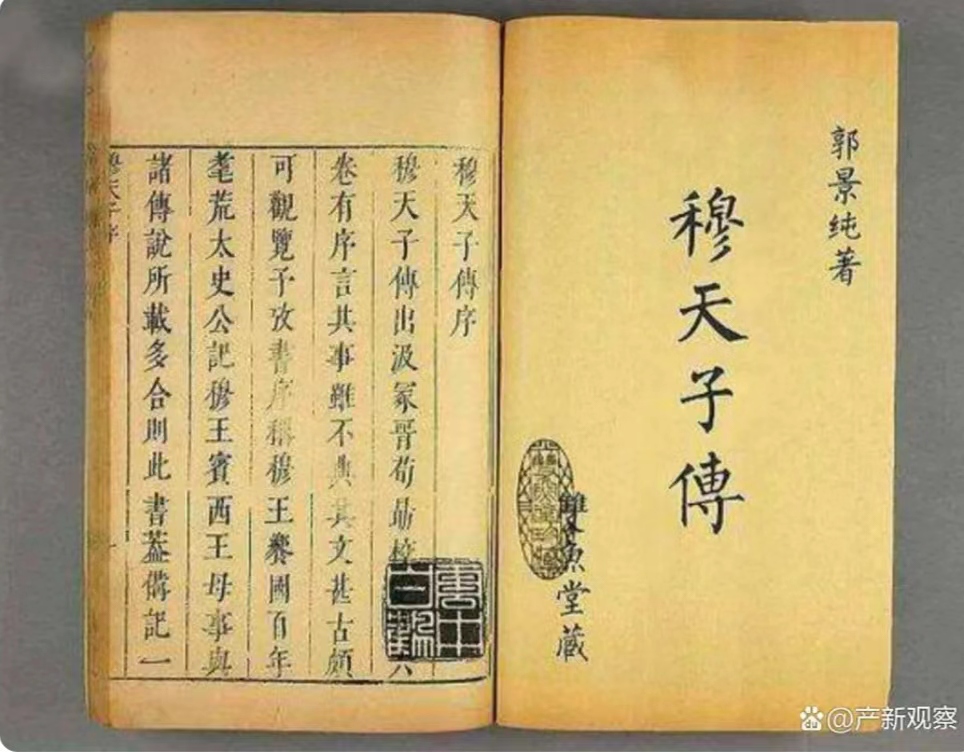 郭景纯著
穆天子傳
魚堂藏
穆天子傳序
穆天子傳出汲冢晉荀勗校六
卷有序言其事雖不典其文甚古頗
可觀覽予攷書序稱穆王饗國百年
耄荒太史公記穆王賓西王母事與
諸傳說所載多合則此書蓋備記一
穆天子序
@产新观察